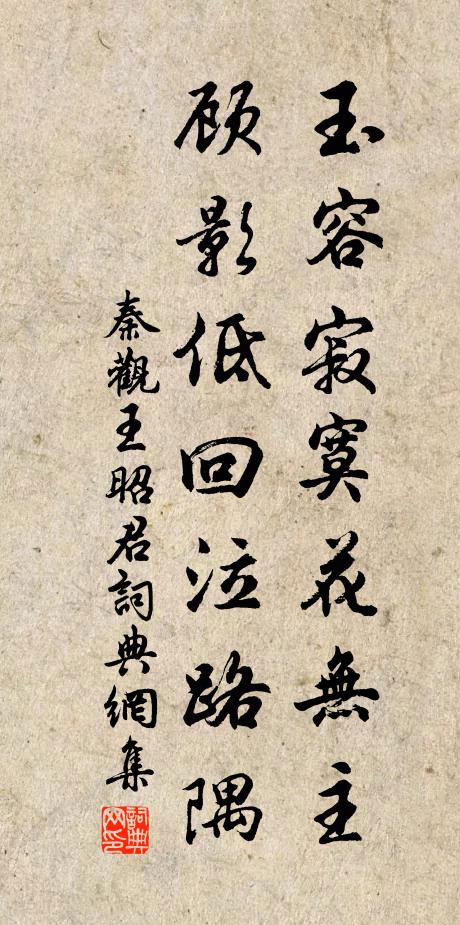 玉容寂寞花無主
顾影低回泣路隅
秦觀王昭君詞典網集
詞典网印